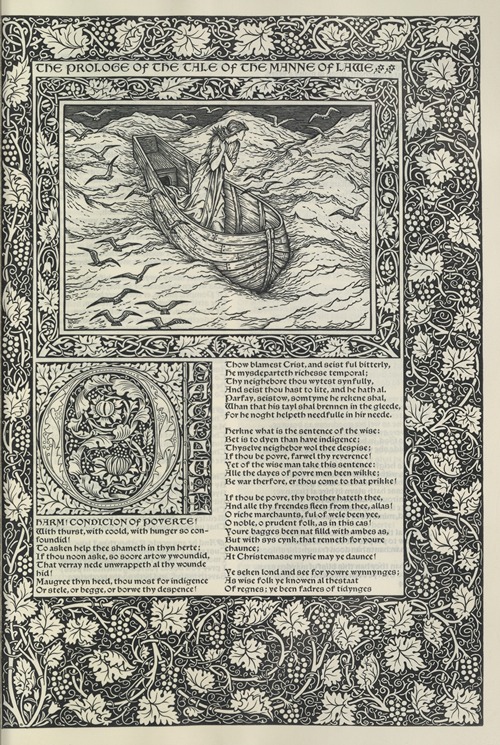 THE PROLOGE OF THE TALE OF THE MANNE OF LAWE
O
HARM! CONDICION OF POVERTE!
With thurst, with coold, with hunger so con-
foundid!
To asken help thee shameth in thyn herte;
If thou noon aske, so soore artow ywoundid,
That verray nede unwrappeth al thy wounde
hid!
Maugree thyn heed, thou most for indigence
Or stele, or begge, or borwe thy despence!
Thow blamest Crist, and seist ful bitterly,
He mysdeparteth richesse temporal;
Thy neighebore thou wytest synfully,
And seist thou hast to lite, and he hath al.
Parfay, seistow, somtyme he rekene shal,
Whan that his tayl shal brennen in the gleede,
For he noght helpeth needfulle in hir neede.
Herkne what is the sentence of the wise:
Bet is to dyen than have indigence;
Thyselve neighebor wol thee despise;
If thou be povre, farwel thy reverence!
Yet of the wise man take this sentence:
Alle the dayes of povre men been wikke;
Be war therfore, er thou come to that prikke!
If thou be povre, thy brother hateth thee,
And alle thy freendes fleen from thee, allas!
O riche marchaunts, ful of wele been yee,
O noble, o prudent folk, as in this cas!
Youre bagges been nat fild with ambes as,
But with sys cynk, that renneth for youre
chaunce;
At Christemasse myrie may ye daunce!
Ye seken lond and see for yowre wynnynges;
As wise folk ye knowen al thestaat
Of regnes; ye been fadres of tidynges